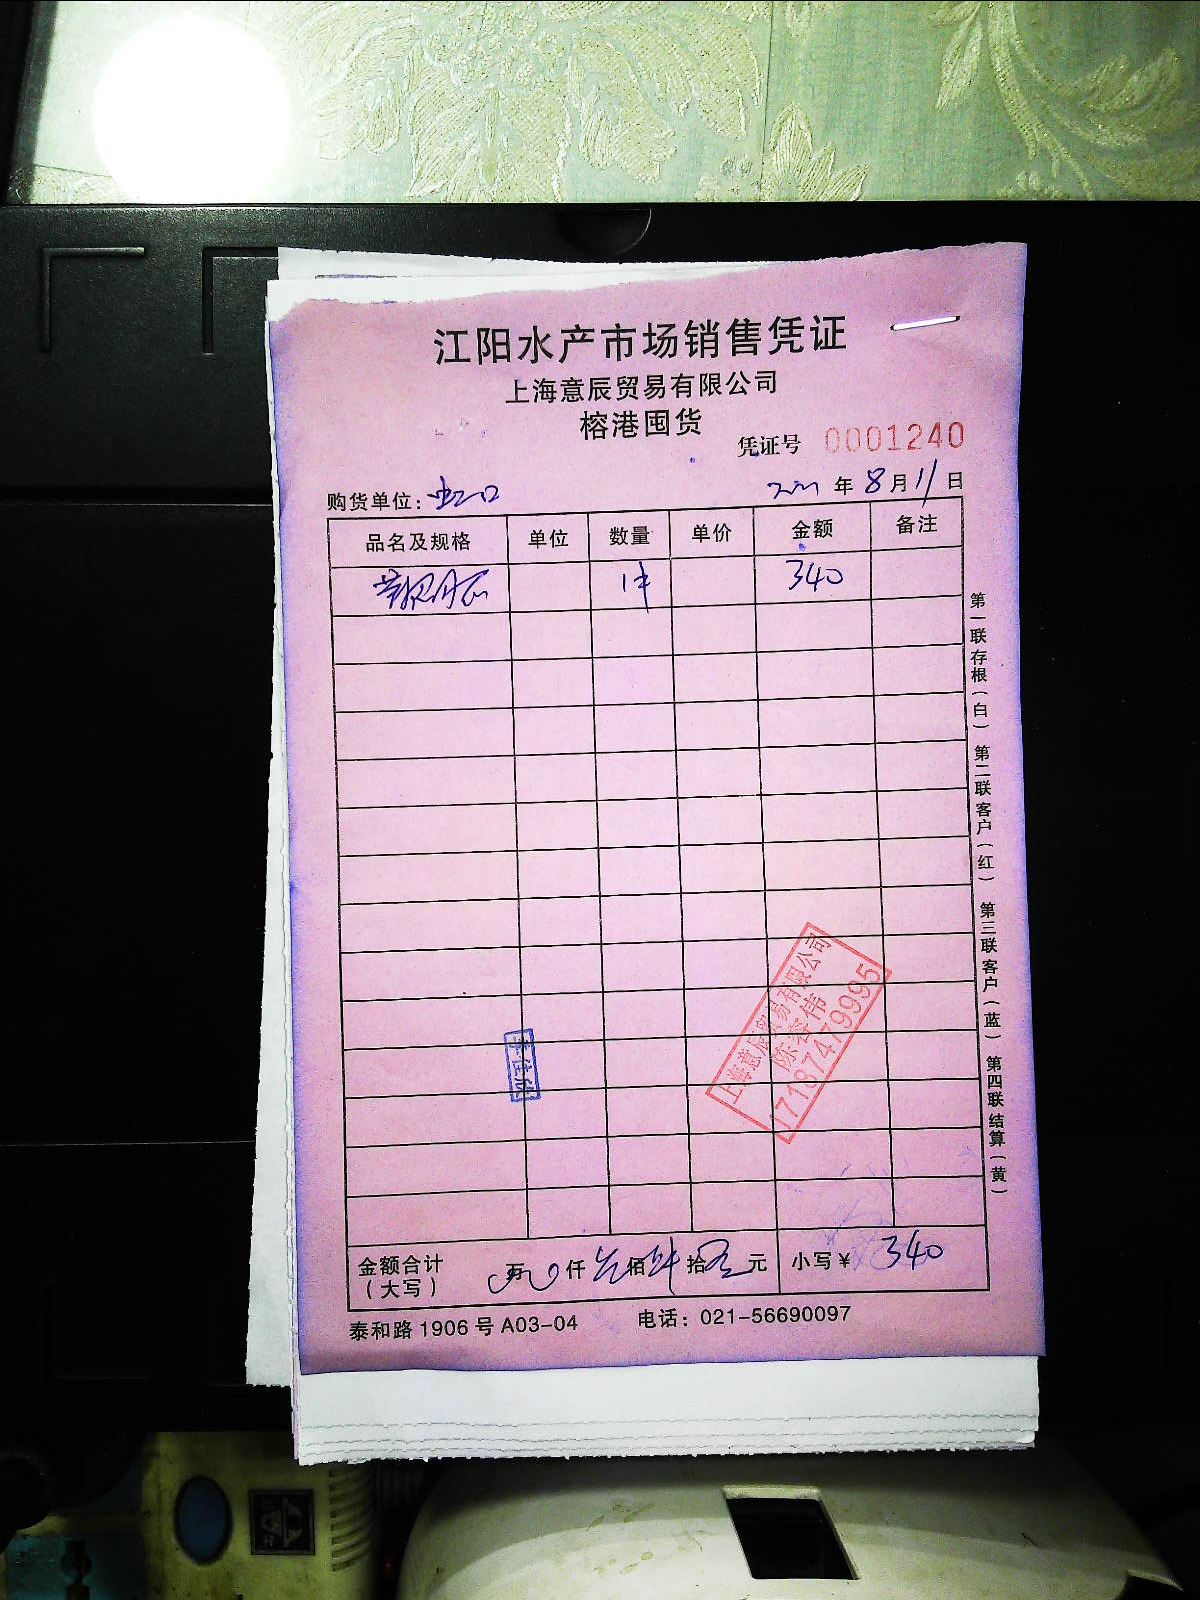 江阳水产市场销售凭证
上海意辰贸易有限公司
榕港囤货
凭证号 0001240
购货单位：虹口 年 8 月 11 日
品名及规格 单位 数量 单价 金额 备注
1件 340
第一联存根（白） 第二联客户（红） 第三联客户（蓝） 第四联结算（黄）
上海意辰贸易有限公司
陈容伟
17187479995
金额合计（大写） 万 仟 佰 拾 元 小写￥ 340
泰和路 1906 号 A03-04 电话：021-56690097